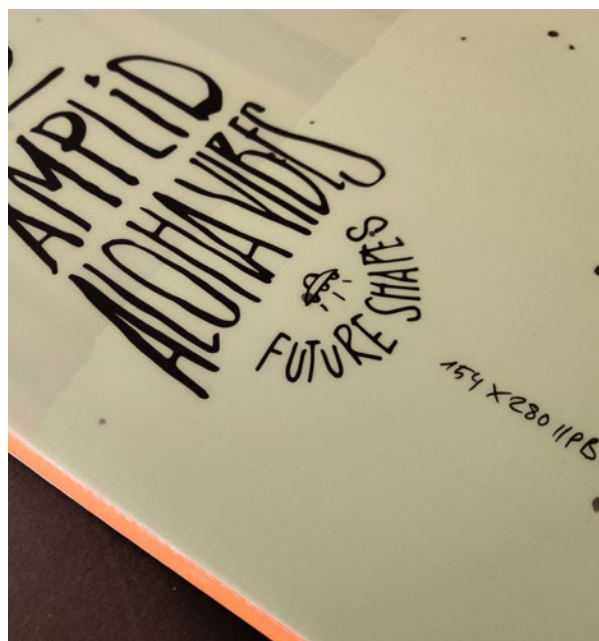 AMPLID
ALOHA VIBES
FUTURE SHAPES
154 X 280 // PB